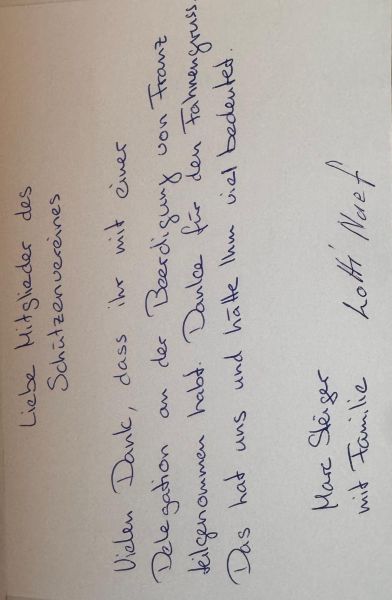 Liebe Mitglieder des
Schützenvereines
Vielen Dank, dass ihr mit einer
Delegation an der Beerdigung von Franz
teilgenommen habt. Danke für den Fahnengruss.
Das hat uns und hätte Ihm viel bedeutet.
Marc Steiger
mit Familie
Lotti Naef